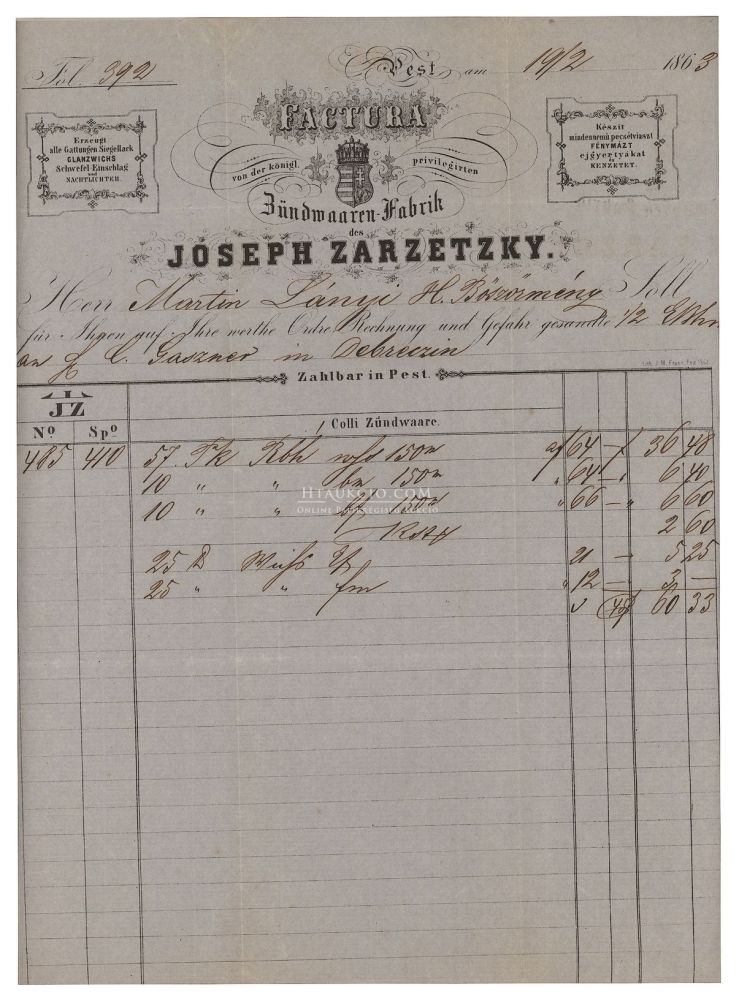 Fol. 392
Pest am 19/2 1863
FACTURA
Erzeugt
alle Gattungen Siegellack
GLANZWICHS
Schwefel-Einschlag
und
NACHTLICHTER.
Készit
mindennemü pecsétviaszt
FÉNYMÁZT
ejgyertyákat
és
KENZETET.
von der königl. privilegirten
Zündwaaren-Fabrik
des
JOSEPH ZARZETZKY.
Herr Martin Lányi H. Böszörmény Soll
für Ihnen auf Ihre werthe Ordre Rechnung und Gefahr gesandte 1/2
an H C. Gaszner in Debreczin
Zahlbar in Pest.
JZ
No Spo
Colli Zündwaare.
485 410 57 Rbh 150m 64 — 36 48
10 " " 150m " 64 — 6 40
10 " " 150m " 66 — " 6 60
2 60
25 21 — 5 25
25 " " fm " 12 — 3 —
60 33
HTAUKCIO.COM
ONLINE PAPÍRRÉGISÉG AUKCIÓ